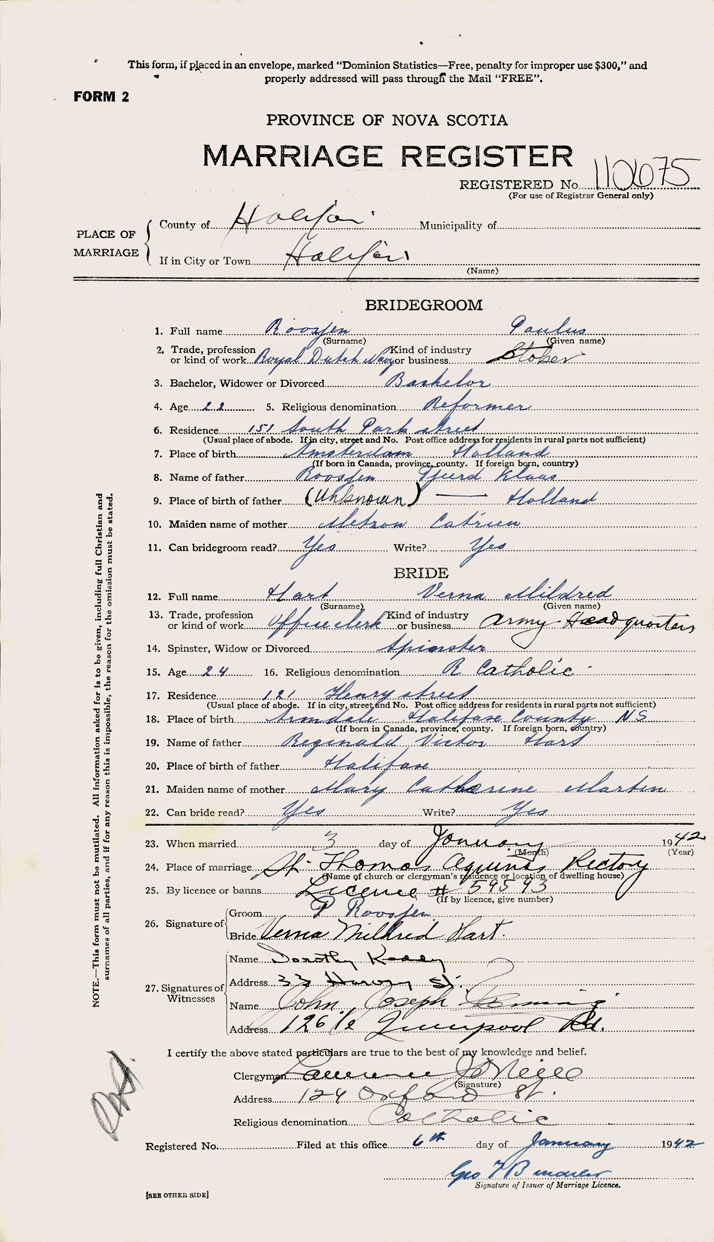 This form, if placed in an envelope, marked "Dominion Statistics—Free, penalty for improper use $300," and
properly addressed will pass through the Mail "FREE".
FORM 2
PROVINCE OF NOVA SCOTIA
MARRIAGE REGISTER
REGISTERED No.
(For use of Registrar General only)
PLACE OF MARRIAGE
County of Halifax Municipality of
If in City or Town Halifax
(Name)
BRIDEGROOM
1. Full name Roosjen Paulus
(Surname) (Given name)
2. Trade, profession or kind of work Royal Dutch Navy Kind of industry or business Stoker
3. Bachelor, Widower or Divorced Bachelor
4. Age 22 5. Religious denomination Reformer
6. Residence 151 South Park street
(Usual place of abode. If in city, street and No. Post office address for residents in rural parts not sufficient)
7. Place of birth Amsterdam Holland
(If born in Canada, province, county. If foreign born, country)
8. Name of father Roosjen Tjeerd Klaas
9. Place of birth of father (Unknown) — Holland
10. Maiden name of mother Catrien
11. Can bridegroom read? Yes Write? Yes
BRIDE
12. Full name Hart Verna Mildred
(Surname) (Given name)
13. Trade, profession or kind of work Office clerk Kind of industry or business Army Headquarters
14. Spinster, Widow or Divorced Spinster
15. Age 24 16. Religious denomination R Catholic
17. Residence 121 Henry street
(Usual place of abode. If in city, street and No. Post office address for residents in rural parts not sufficient)
18. Place of birth Armdale Halifax County NS
(If born in Canada, province, county. If foreign born, country)
19. Name of father Reginald Victor Hart
20. Place of birth of father Halifax
21. Maiden name of mother Mary Catherine Martin
22. Can bride read? Yes Write? Yes
23. When married 3 day of January 1942
(Month) (Year)
24. Place of marriage St. Thomas Aquinas Rectory
(Name of church or clergyman's residence or location of dwelling house)
25. By licence or banns Licence # 59593
(If by licence, give number)
26. Signature of
Groom P Roosjen
Bride Verna Mildred Hart.
27. Signatures of Witnesses
Name Dorothy
Address 33 Harvey St.
Name John Joseph
Address 126 1/2 Liverpool Rd.
I certify the above stated particulars are true to the best of my knowledge and belief.
Clergyman Lawrence J O'Neill
(Signature)
Address 124 Oxford St.
Religious denomination Catholic
Registered No. Filed at this office 6th day of January 1942
Geo F
Signature of Issuer of Marriage Licence.
[SEE OTHER SIDE]
NOTE.—This form must not be mutilated. All information asked for is to be given, including full Christian and
surnames of all parties, and if for any reason this is impossible, the reason for the omission must be stated.